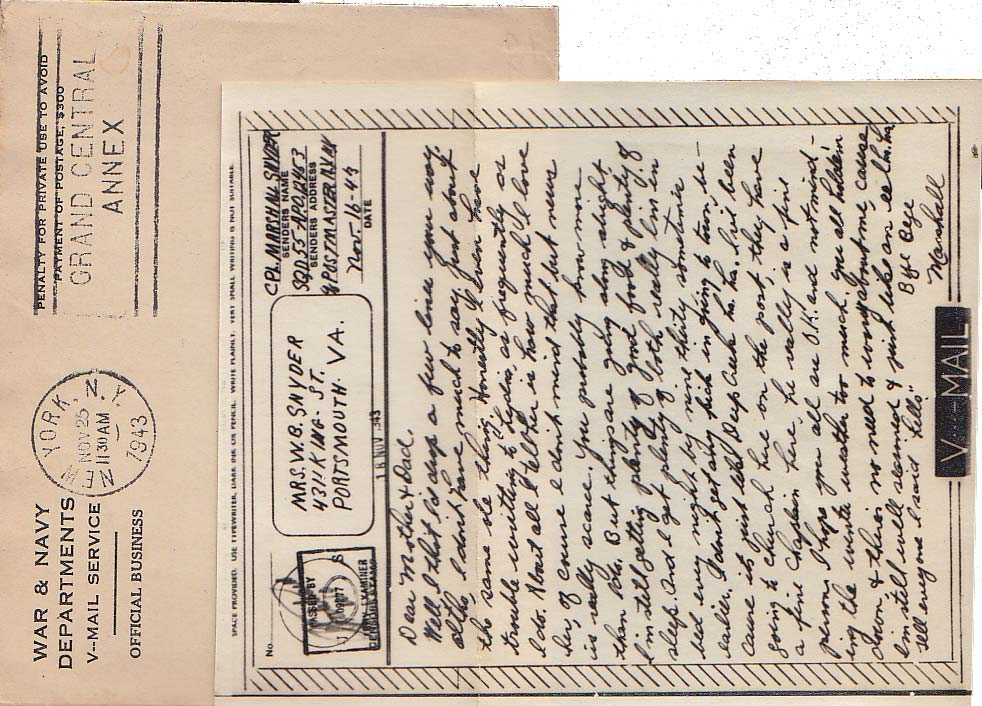 WAR & NAVY
DEPARTMENTS
V--MAIL SERVICE
OFFICIAL BUSINESS
NEW YORK, N.Y.
NOV 25
11 30 AM
1943
PENALTY FOR PRIVATE USE TO AVOID
PAYMENT OF POSTAGE, $300
GRAND CENTRAL
ANNEX
SPACE PROVIDED. USE TYPEWRITER, DARK INK OR PENCIL. WRITE PLAINLY. VERY SMALL WRITING IS NOT SUITABLE.
No.
PASSED BY
ARMY EXAMINER
MRS. W.B. SNYDER
431 KING ST.
PORTSMOUTH VA.
CPL. MARSHAL SNYDER
SENDERS NAME
SENDERS ADDRESS
% POSTMASTER N.Y. N.Y
Nov. 16-43
DATE
18 NOV 1943
Dear Mother & Dad.
Well I thot I'd drop a few lines your way.
altho, I don't have much to say. Just about
the same ole thing. Honestly I even have
trouble writing to Lydia as frequently as
I do. About all I tell her is how much I love
her, of course I don't mind that but news
is really scarce. You probably know more
than I do. But things are going along alright
I'm still getting plenty of good food & plenty of
sleep. And I get plenty of both really I'm in
bed every night by nine thirty sometimes
earlier. I don't get any kick in trying to town be-
cause it's just like Deep Creek ha. ha. I've been
going to church here on the post, they have
a fine Chaplin here, he really is a fine
person. I hope you all are O.K. and not mind-
ing the winter weather too much. you all hold em
down & there's no need to worry about me, cause
I'm still well seasoned & just like an ha. ha.
tell everyone I said "hello"
Bye Bye
Marshall
V--MAIL